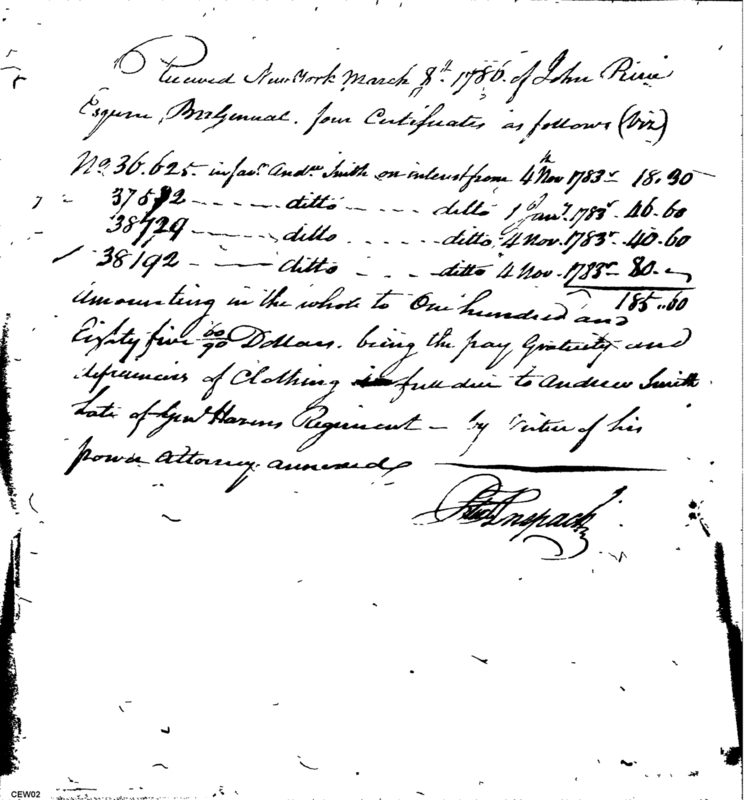 Received New York March 8th 1786 of John Pierce
Esquire, PayGeneral. four Certificates as follows (Viz)
No. 36.625 in favr. Andw. Smith on interest from 4th Nov 1783 18.30
37592 - - - - ditto - - - ditto 1 Jany. 1783 46.60
38729 - - - - ditto - - - - ditto 4 Nov. 1783 40.60
38192 - - - ditto - - - ditto 4 Nov. 1783 80. -
185..60
Amounting in the whole to One hundred and
Eighty five 60/90 Dollars. being the pay Gratuity and
of Clothing in full due to Andrew Smith
Late of Genl Hazens Regiment - by Virtue of his
power Attorney annexed
Anspach
CEW02